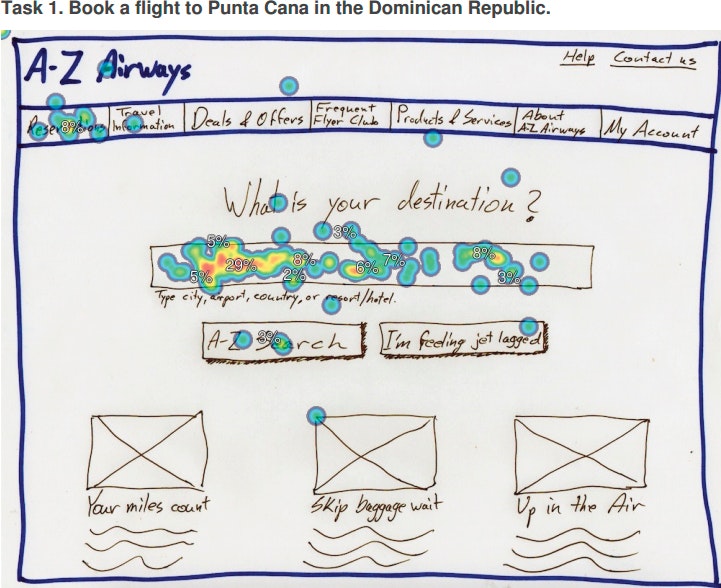 Task 1. Book a flight to Punta Cana in the Dominican Republic.
A-Z Airways
Help Contact us
Reservations
Travel Information
Deals & Offers
Frequent Flyer Club
Products & Services
About A-Z Airways
My Account
What is your destination?
5% 3%
29% 8% 6% 7% 8%
5% 2% 3%
8%
Type city, airport, country, or resort/hotel.
A-Z Search
3%
I'm feeling jet lagged
Your miles count
Skip baggage wait
Up in the Air